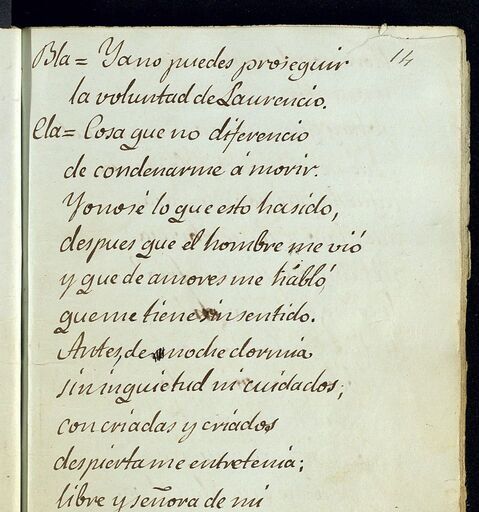 14
Bla= Ya no puedes proseguir
la voluntad de Laurencio.
Cla= Cosa que no diferencio
de condenarme á morir.
Yo no sé lo que esto ha sido,
despues que el hombre me vió
y que de amores me habló,
que me tiene sin sentido.
Antes, de noche dormia
sin inquietud ni cuidados;
con criadas y criados
despierta me entretenia;
libre y señora de mi